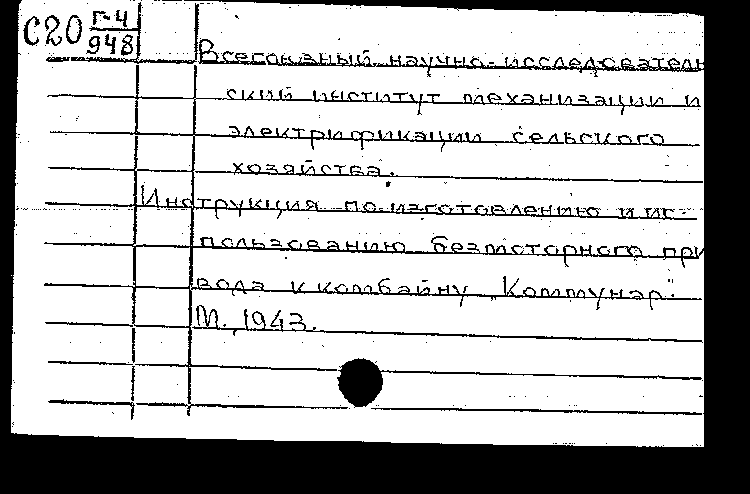 С20 Г-4
948
Всесоюзный научно-исследователь
ский институт механизации и
электрификации сельского
хозяйства.
Инструкция по изготовлению и ис-
пользованию безмоторного при
вода к комбайну "Коммунар".
М., 1943.